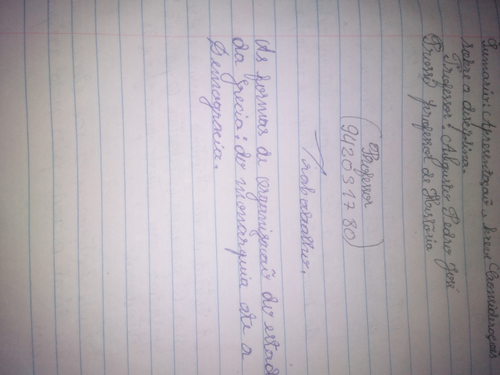 Sumario: Apresentação e breve Consideraçoes
sobre a disciplina.
Professor: Augusto Pedro José
Prosso professor de Historia
(Professor
942031780)
Trabalho.
As formas de organização do estado
da Grecia: do monarquia ate a
Democracia.